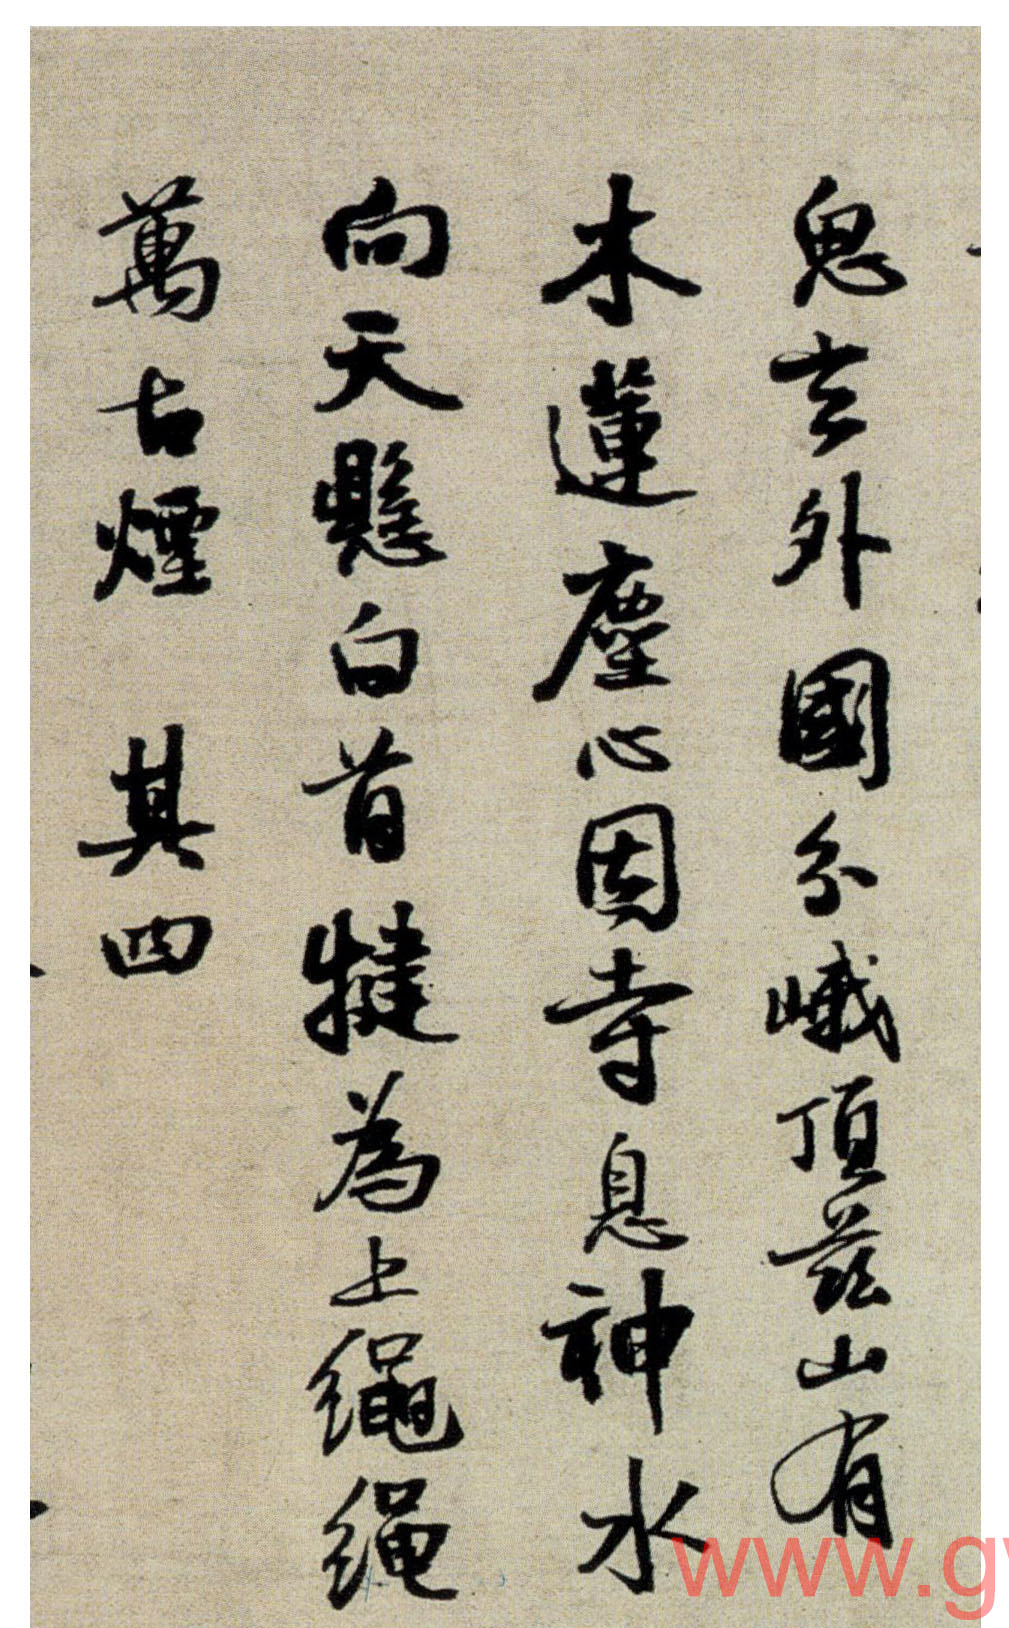 兜玄外國分峨頂茲山有
木蓮塵心因寺息神水
向天懸白首犍為上繩繩
萬古煙 其四
www.g